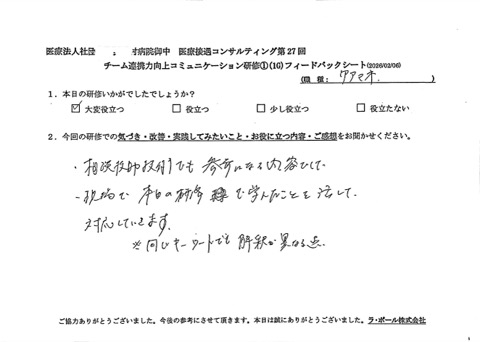 医療法人社団 病院御中 医療接遇コンサルティング第27回
チーム連携力向上コミュニケーション研修①(1G)フィードバックシート(2026/02/06)
(職種: ケアマネ )
1. 本日の研修いかがでしたでしょうか?
☑ 大変役立つ □ 役立つ □ 少し役立つ □ 役立たない
2. 今回の研修での気づき・改善・実践してみたいこと・お役に立つ内容・ご感想をお聞かせください。
・相談役の役割でも参考になる内容でした。
・現場で本日の研修で学んだことを活して
対応していきます。
※同じキーワードでも解釈が異なる点。
ご協力ありがとうございました。今後の参考にさせて頂きます。本日は誠にありがとうございました。ラ・ポール株式会社